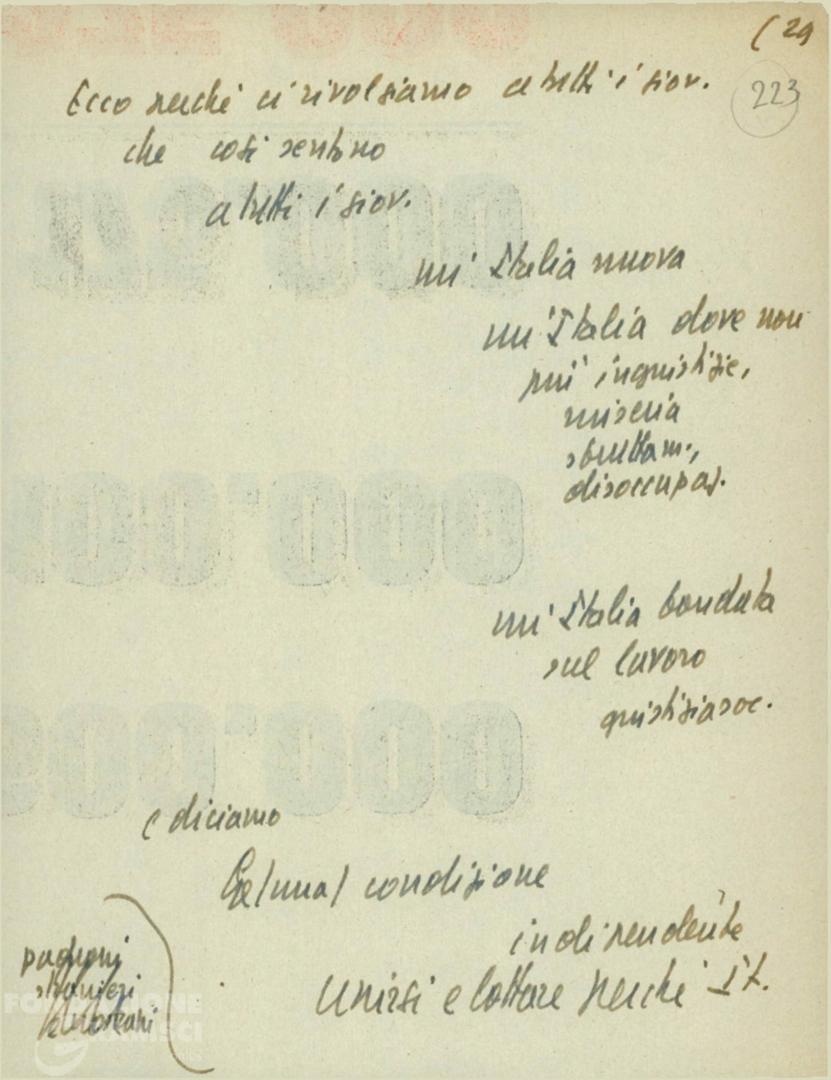 ( 29
223
Ecco perché ci rivolgiamo a tutti i giov.
che così sentono
a tutti i giov.
un' Italia nuova
un'Italia dove non
più ingiustizie,
miseria
sfruttam.,
disoccupaz.
un'Italia fondata
sul lavoro
giustizia soc.
e diciamo
condizione
indipendente
Unirsi e lottare perché It.
padroni
stranieri
000.000
000.000
FONDAZIONE
GRAMSCI